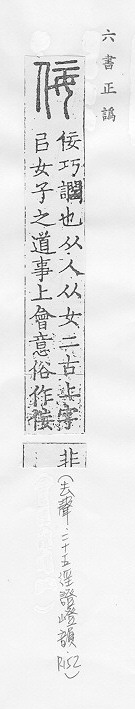 六書正譌
佞
佞巧讇也从人从女二古上字
㠯女子之道事上會意俗作侫
非
(去聲.三十五徑證嶝韻.P152)